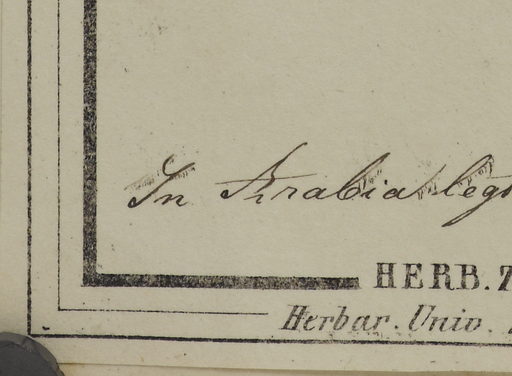 In Arabia leg
HERB.
Herbar. Univ.